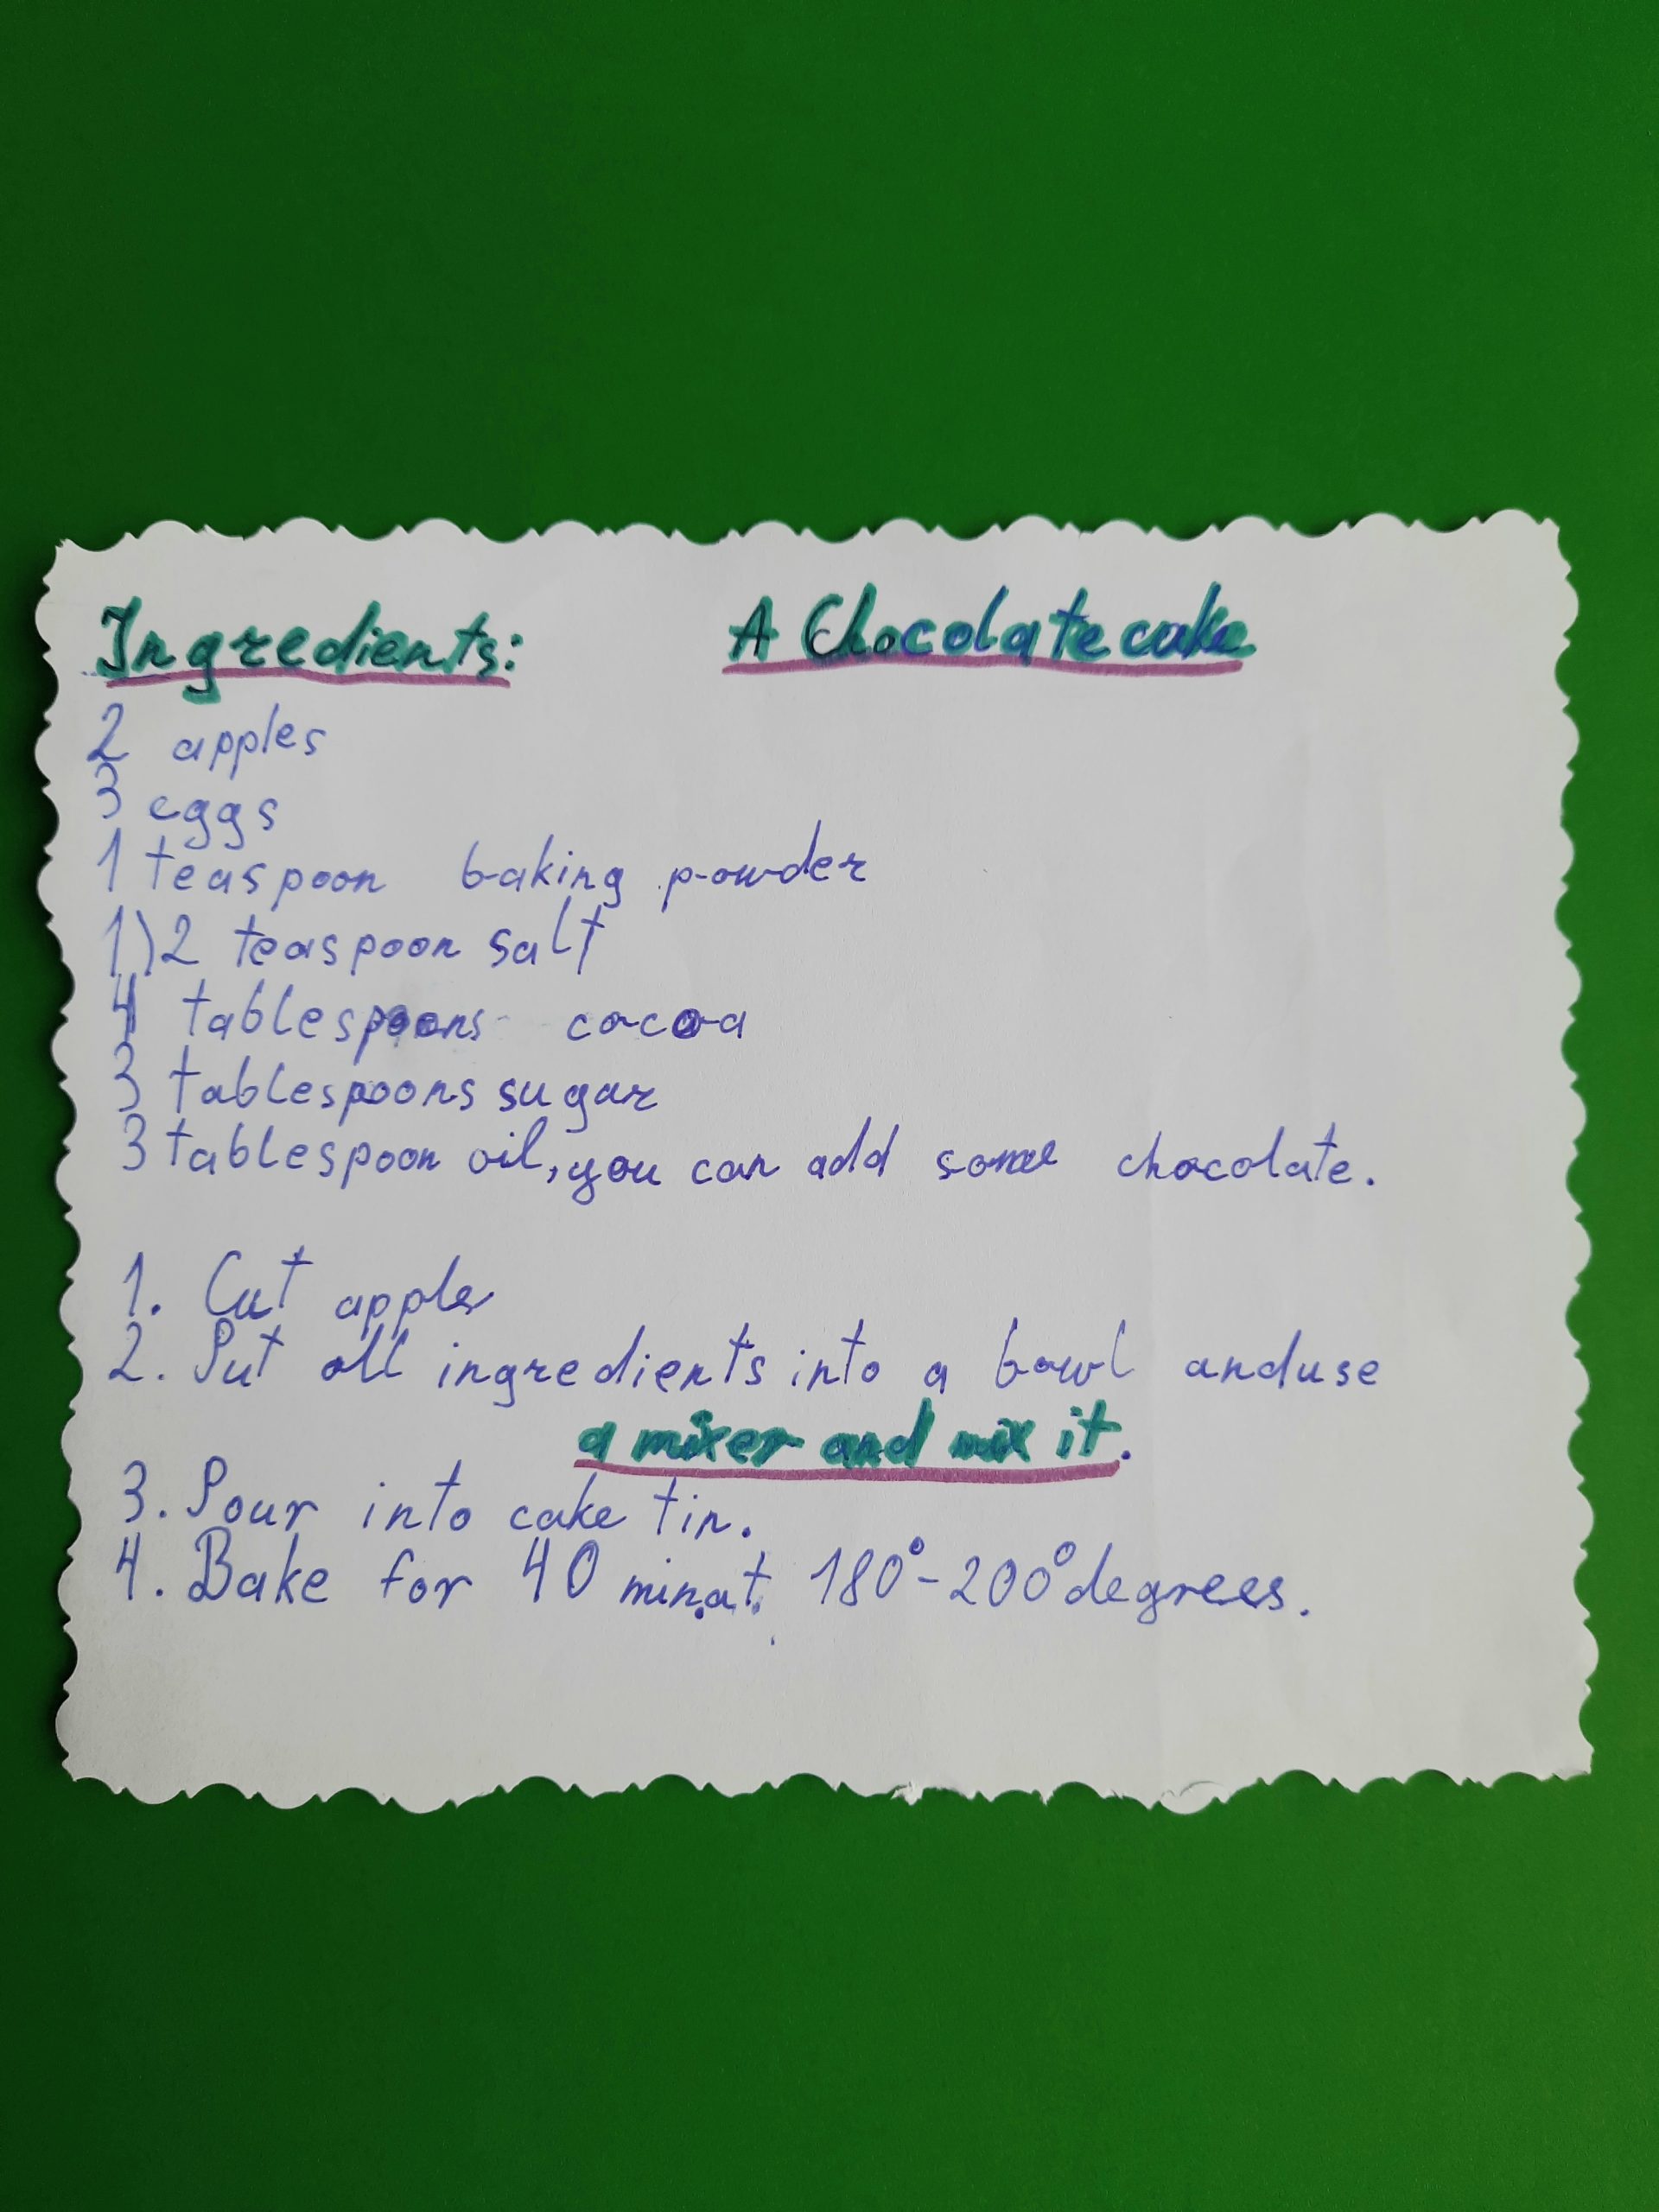 Ingredients: A Chocolate cake
2 apples
3 eggs
1 teaspoon baking powder
1)2 teaspoon salt
4 tablespoons cocoa
3 tablespoons sugar
3 tablespoon oil, you can add some chocolate.
1. Cut apples
2. Put all ingredients into a bowl and use
a mixer and mix it.
3. Pour into cake tin.
4. Bake for 40 min.at. 180°-200° degrees.